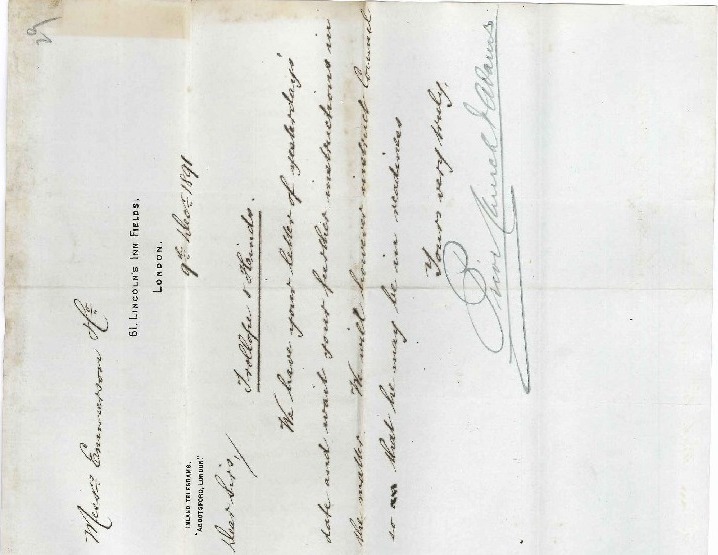 61, LINCOLN'S INN FIELDS,
LONDON.
9th Decr 1891
INLAND TELEGRAMS.
"ABBOTSFORD, LONDON"
Dear Sirs,
Trollope &
We have your letter of yesterday's
date and wait your further instructions in
the matter. We will however instruct Counsel
so as that he may be in readiness
Yours very truly,
Church & Adams
Messrs Emmerson &